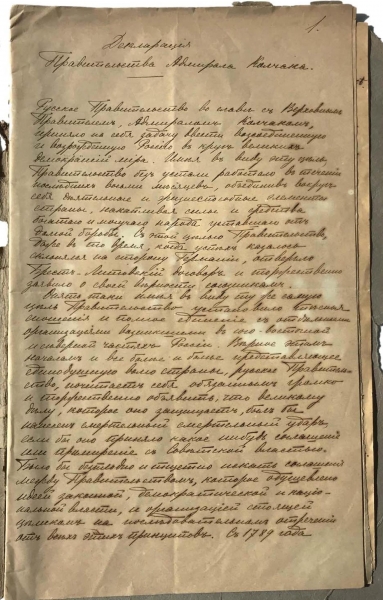 1.
Декларація
Правительства Адмирала Колчака.
Русское Правительство во главѣ съ Верховнымъ
Правителемъ, Адмираломъ Колчакомъ,
приняло на себя задачу ввести возстановленную
и возрожденную Россію въ кругъ великихъ
демократій мира. Имѣя въ виду эту цѣль,
Правительство безъ устали работало въ теченіи
послѣднихъ восьми мѣсяцевъ, объединивъ вокругъ
себя дѣятельные и жизнеспособные элементы
страны, накапливая силы и средства
богатого и мощного народа уставшаго отъ
долгой борьбы. Съ этой цѣлью Правительство,
даже въ то время, когда успѣхъ казалось
склонялся на сторону Германіи, отвергло
Брестъ-Литовскій договоръ и торжественно
заявило о своей вѣрности союзникамъ.
Опять таки имѣя въ виду ту же самую
цѣль Правительство установило тѣсныя
сношенія и полное единеніе съ отдѣльными
организаціями возникшими въ юго-восточной
и сѣверной частяхъ Россіи. Вѣрное этимъ
началамъ и все болѣе и болѣе представляющее
единодушную волю страны, русское Правительс-
тво, почитаетъ себя обязаннымъ громко
и торжественно объявить, что великому
дѣлу, которое оно защищаетъ, былъ бы
нанесенъ смертельный ударъ,
если бы оно приняло какое нибудь соглашеніе
или примиреніе съ Совѣтской властью.
Было бы безплодно и тщетно искать соглашенія
между Правительствомъ, которое одушевлено
идеей законной, демократической и націо-
нальной власти, и организаціей стоящей
цѣликомъ на послѣдовательномъ отреченіи
отъ всѣхъ этихъ принциповъ. Съ 1789 года